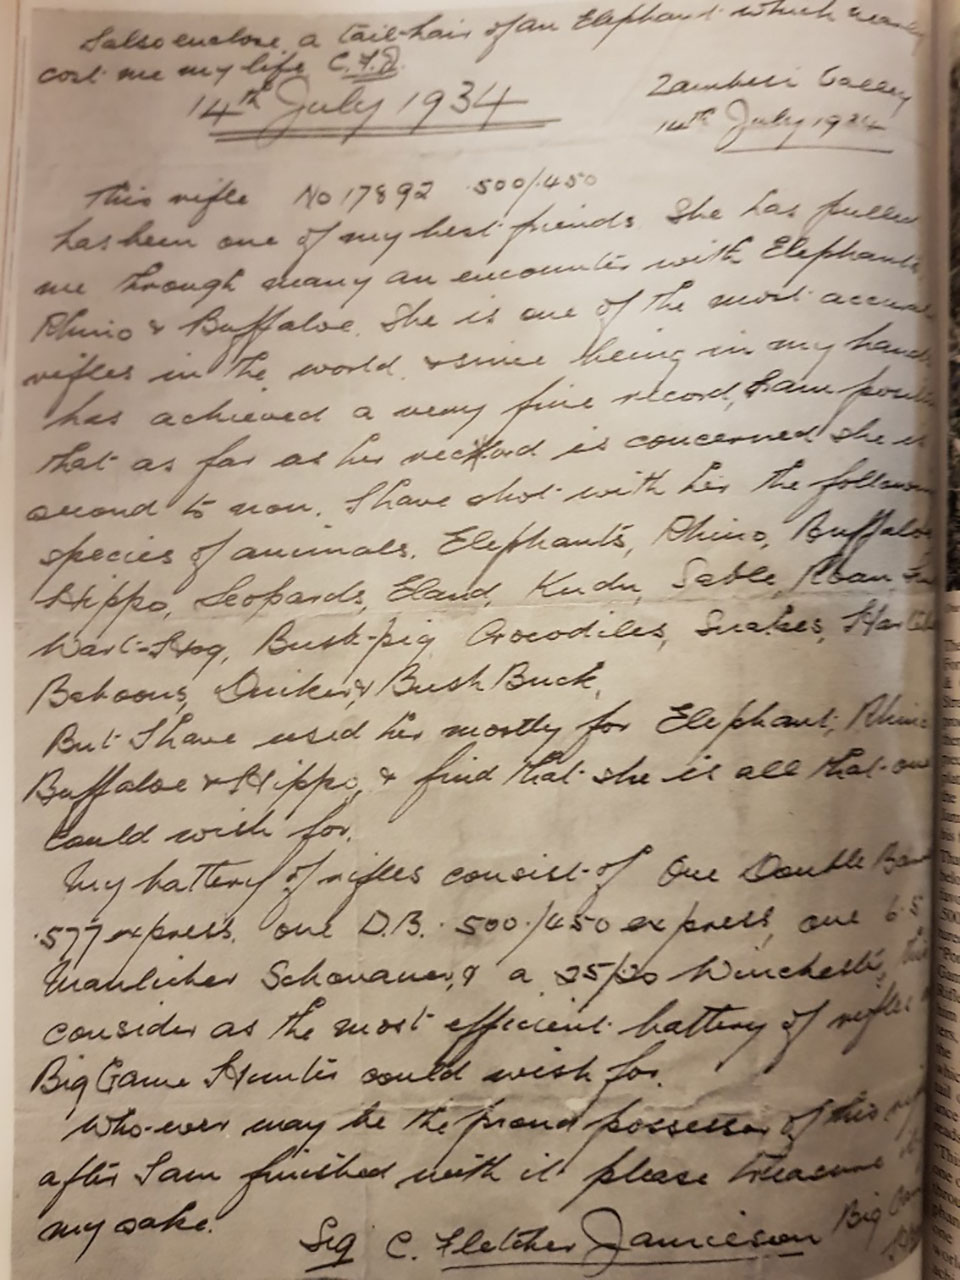 I also enclose a tail-hair of an Elephant which nearly
cost me my life C.F.J.
14th July 1934
Zambesi Valley
14th July 1934
This rifle No 17892 .500/.450
has been one of my best friends. She has pulled
me through many an encounter with Elephants
Rhino & Buffaloe. She is one of the most accurate
rifles in the world. & since being in my hands
has achieved a very fine record, I am proud
that as far as her record is concerned she is
second to non. I have shot with her the following
species of animals. Elephants, Rhino, Buffaloe,
Hippo, Leopards, Eland, Kudu, Sable, Roan,
Wart-Hog, Bush-pig, Crocodiles, Snakes,
Baboons, Duiker & Bush Buck,
But I have used her mostly for Elephant, Rhino
Buffaloe & Hippo, & find that she is all that one
could wish for.
My battery of rifles consist of One Double
.577 express. one D.B. .500./450 express, one 6.5
Manlicher Schonauer, & a 25/20 Winchester, this
consider as the most efficient battery of rifles
Big Game Hunter could wish for.
Who-ever may be the proud possessor of this
after I am finished with it please treasure it
my sake.
Sig C. Fletcher Jamieson Big